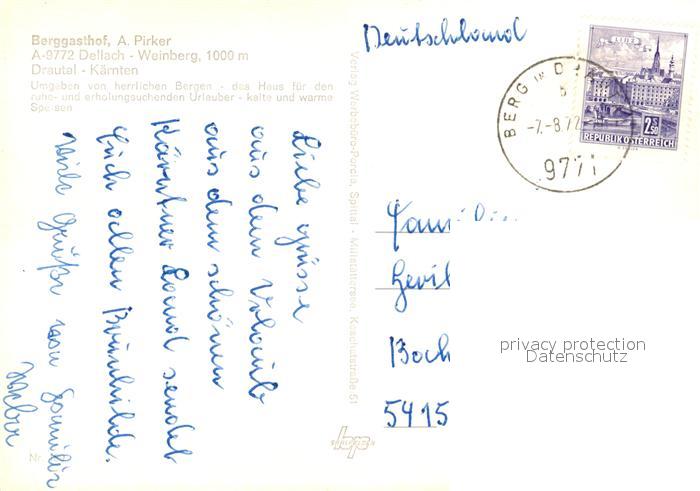 Berggasthof, A. Pirker
A-9772 Dellach - Weinberg, 1000 m
Drautal - Kärnten
Umgeben von herrlichen Bergen - das Haus für den
ruhe- und erholungsuchenden Urlauber - kalte und warme
Speisen
Liebe Grüsse
aus dem Urlaub
aus dem schönen
Kärntner Land sendet
Euch allen Brunhilde.
Viele Grüße von Familie
Weber
Nr
Verlag Werbebüro-Porcia, Spittal - Millstättersee, Koschutstraße 51
Deutschland
LINZ
2.50
REPUBLIK ÖSTERREICH
BERG IM
-7.-8.72
9771
Fam
Bach
5415
privacy protection
Datenschutz